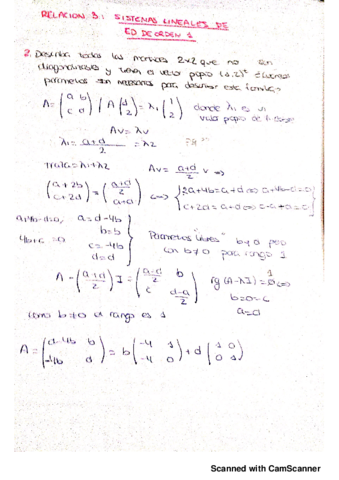 RELACION 3: SISTEMAS LINEALES DE
ED DE ORDEN 1
2. Describa todas las matrices 2x2 que no son
diagonalizables y tienen el vector propio (1,2)ᵗ ¿Cuántos
parámetros son necesarios para describir esta familia?
A = (a b; c d) / A(1; 2) = λ₁(1; 2) donde λ₁ es un
valor propio de
Av = λv
λ₁ = (a+d)/2 = λ2
Traza = λ1 + λ2 Av = (a+d)/2 v ⟺
(a+2b; c+2d) = ((a+d)/2; a+d) ⟺ { 2a+4b = a+d ⟺ a+4b-d=0; c+2d = a+d ⟺ c-a+d=0 }
a+4b-d=0, a = d-4b
4b+c=0 b=b
c=-4b
d=d
Parámetros "libres" b y d pero
con b≠0 para rango 1
A - ((a+d)/2) I = ((a-d)/2 b; c (d-a)/2) rg(A-λI) = 0 ⟺
b=0=c
a=d
como b≠0 el rango es 1
A = (d-4b b; -4b d) = b(-4 1; -4 0) + d(1 0; 0 1)
Scanned with CamScanner